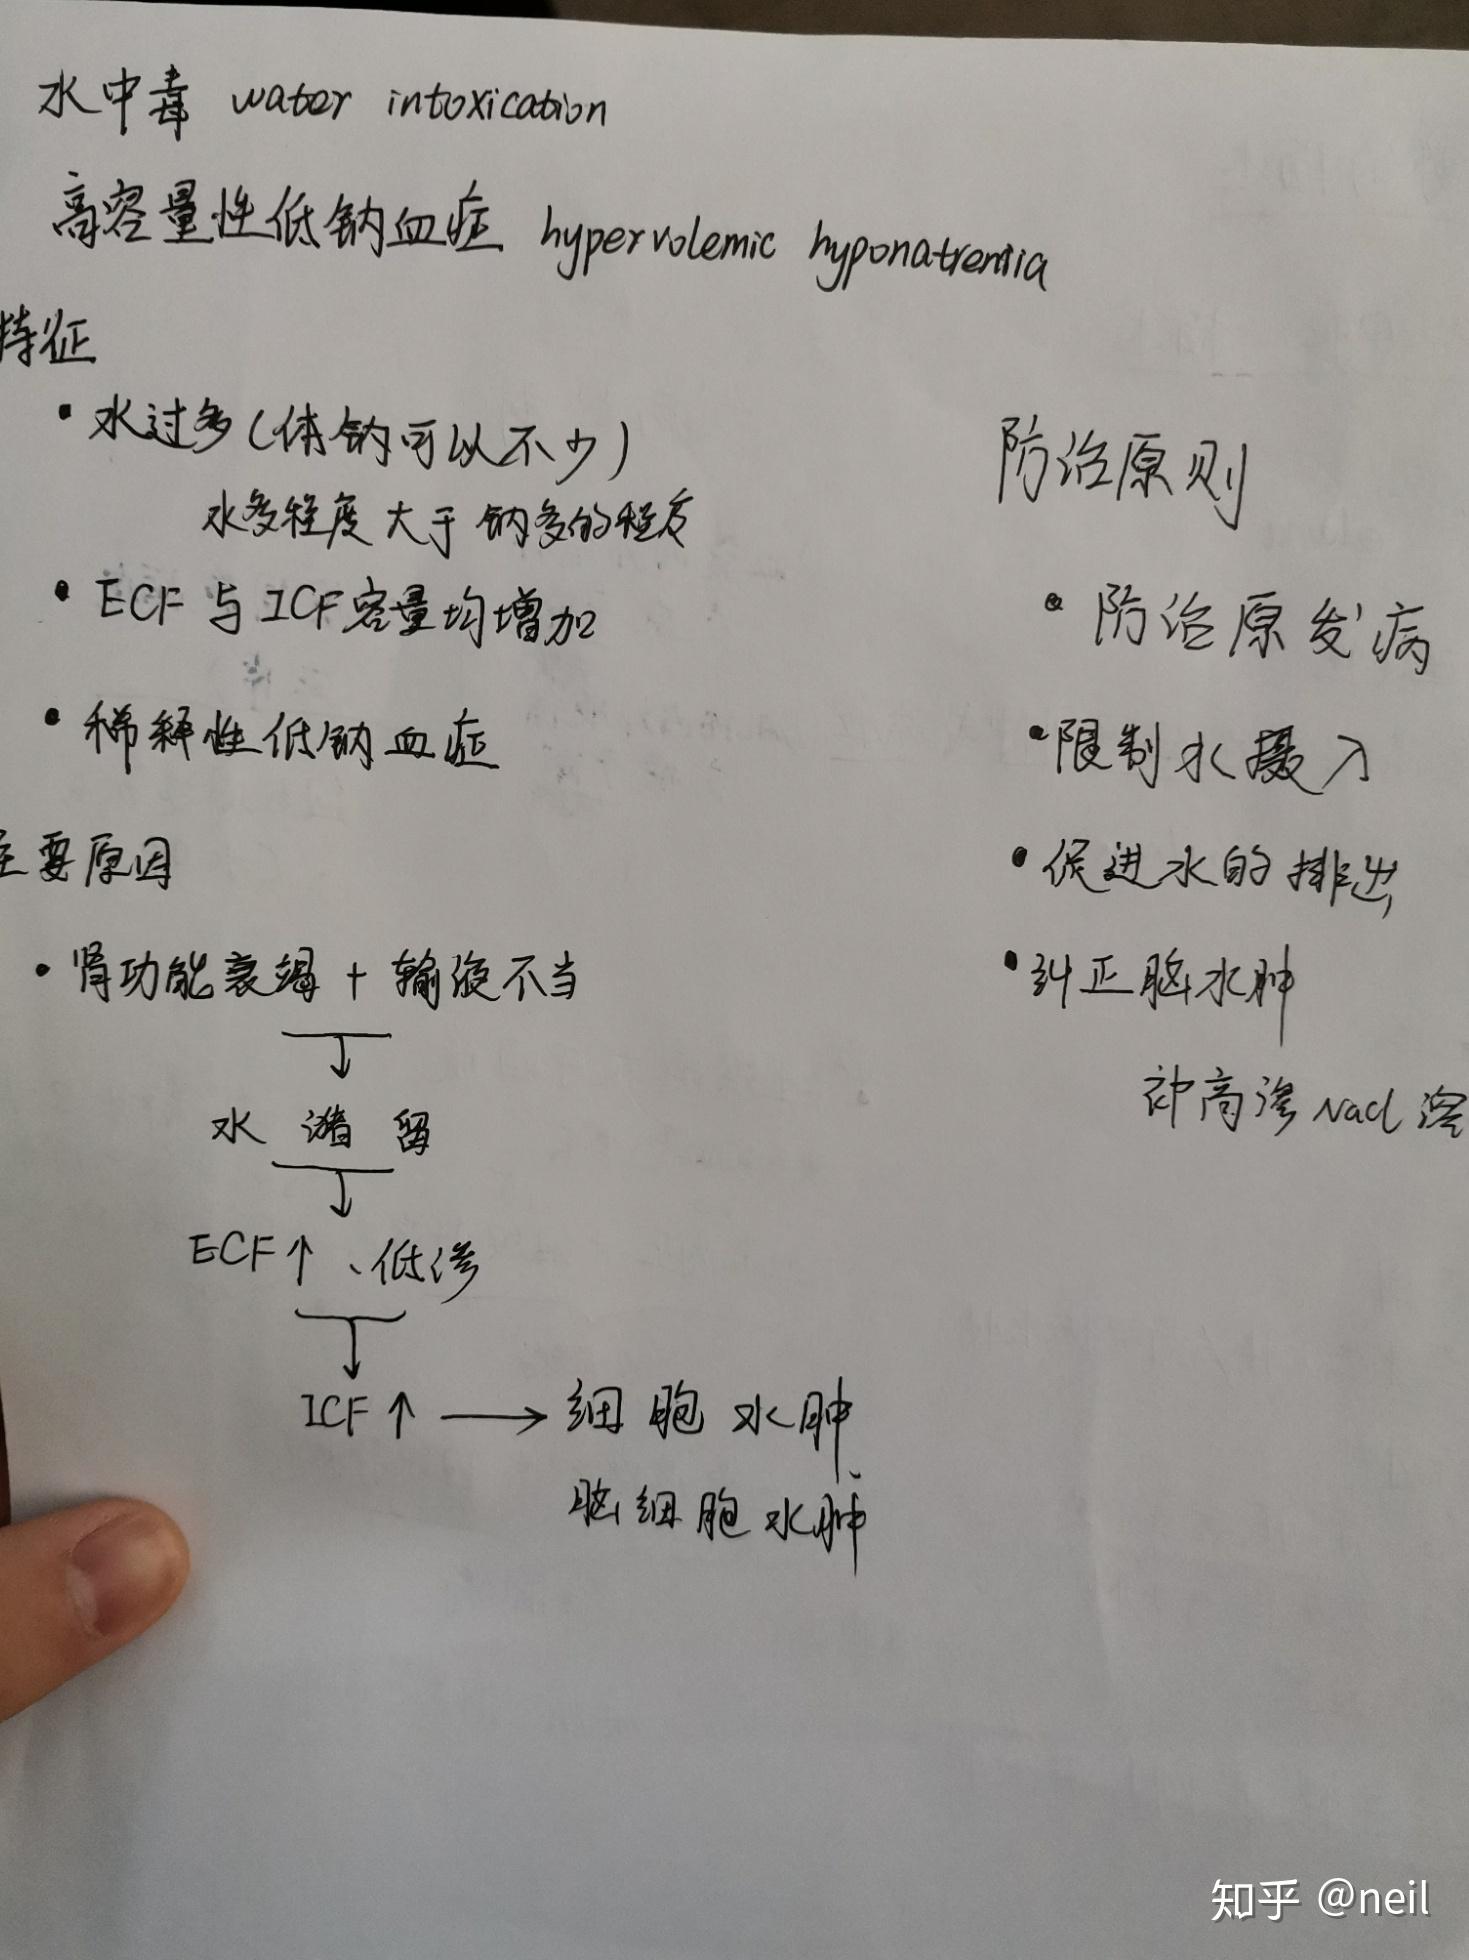 水中毒 water intoxication
高容量性低钠血症 hypervolemic hyponatremia
特征
• 水过多(体钠可以不少)
水多程度大于钠多的程度
• ECF 与 ICF 容量均增加
• 稀释性低钠血症
主要原因
• 肾功能衰竭 + 输液不当
↓
水 潴 留
↓
ECF↑、低渗
↓
ICF↑ → 细胞水肿
脑细胞水肿
防治原则
• 防治原发病
• 限制水摄入
• 促进水的排出
• 纠正脑水肿
补高渗 NaCl 溶
知乎 @neil